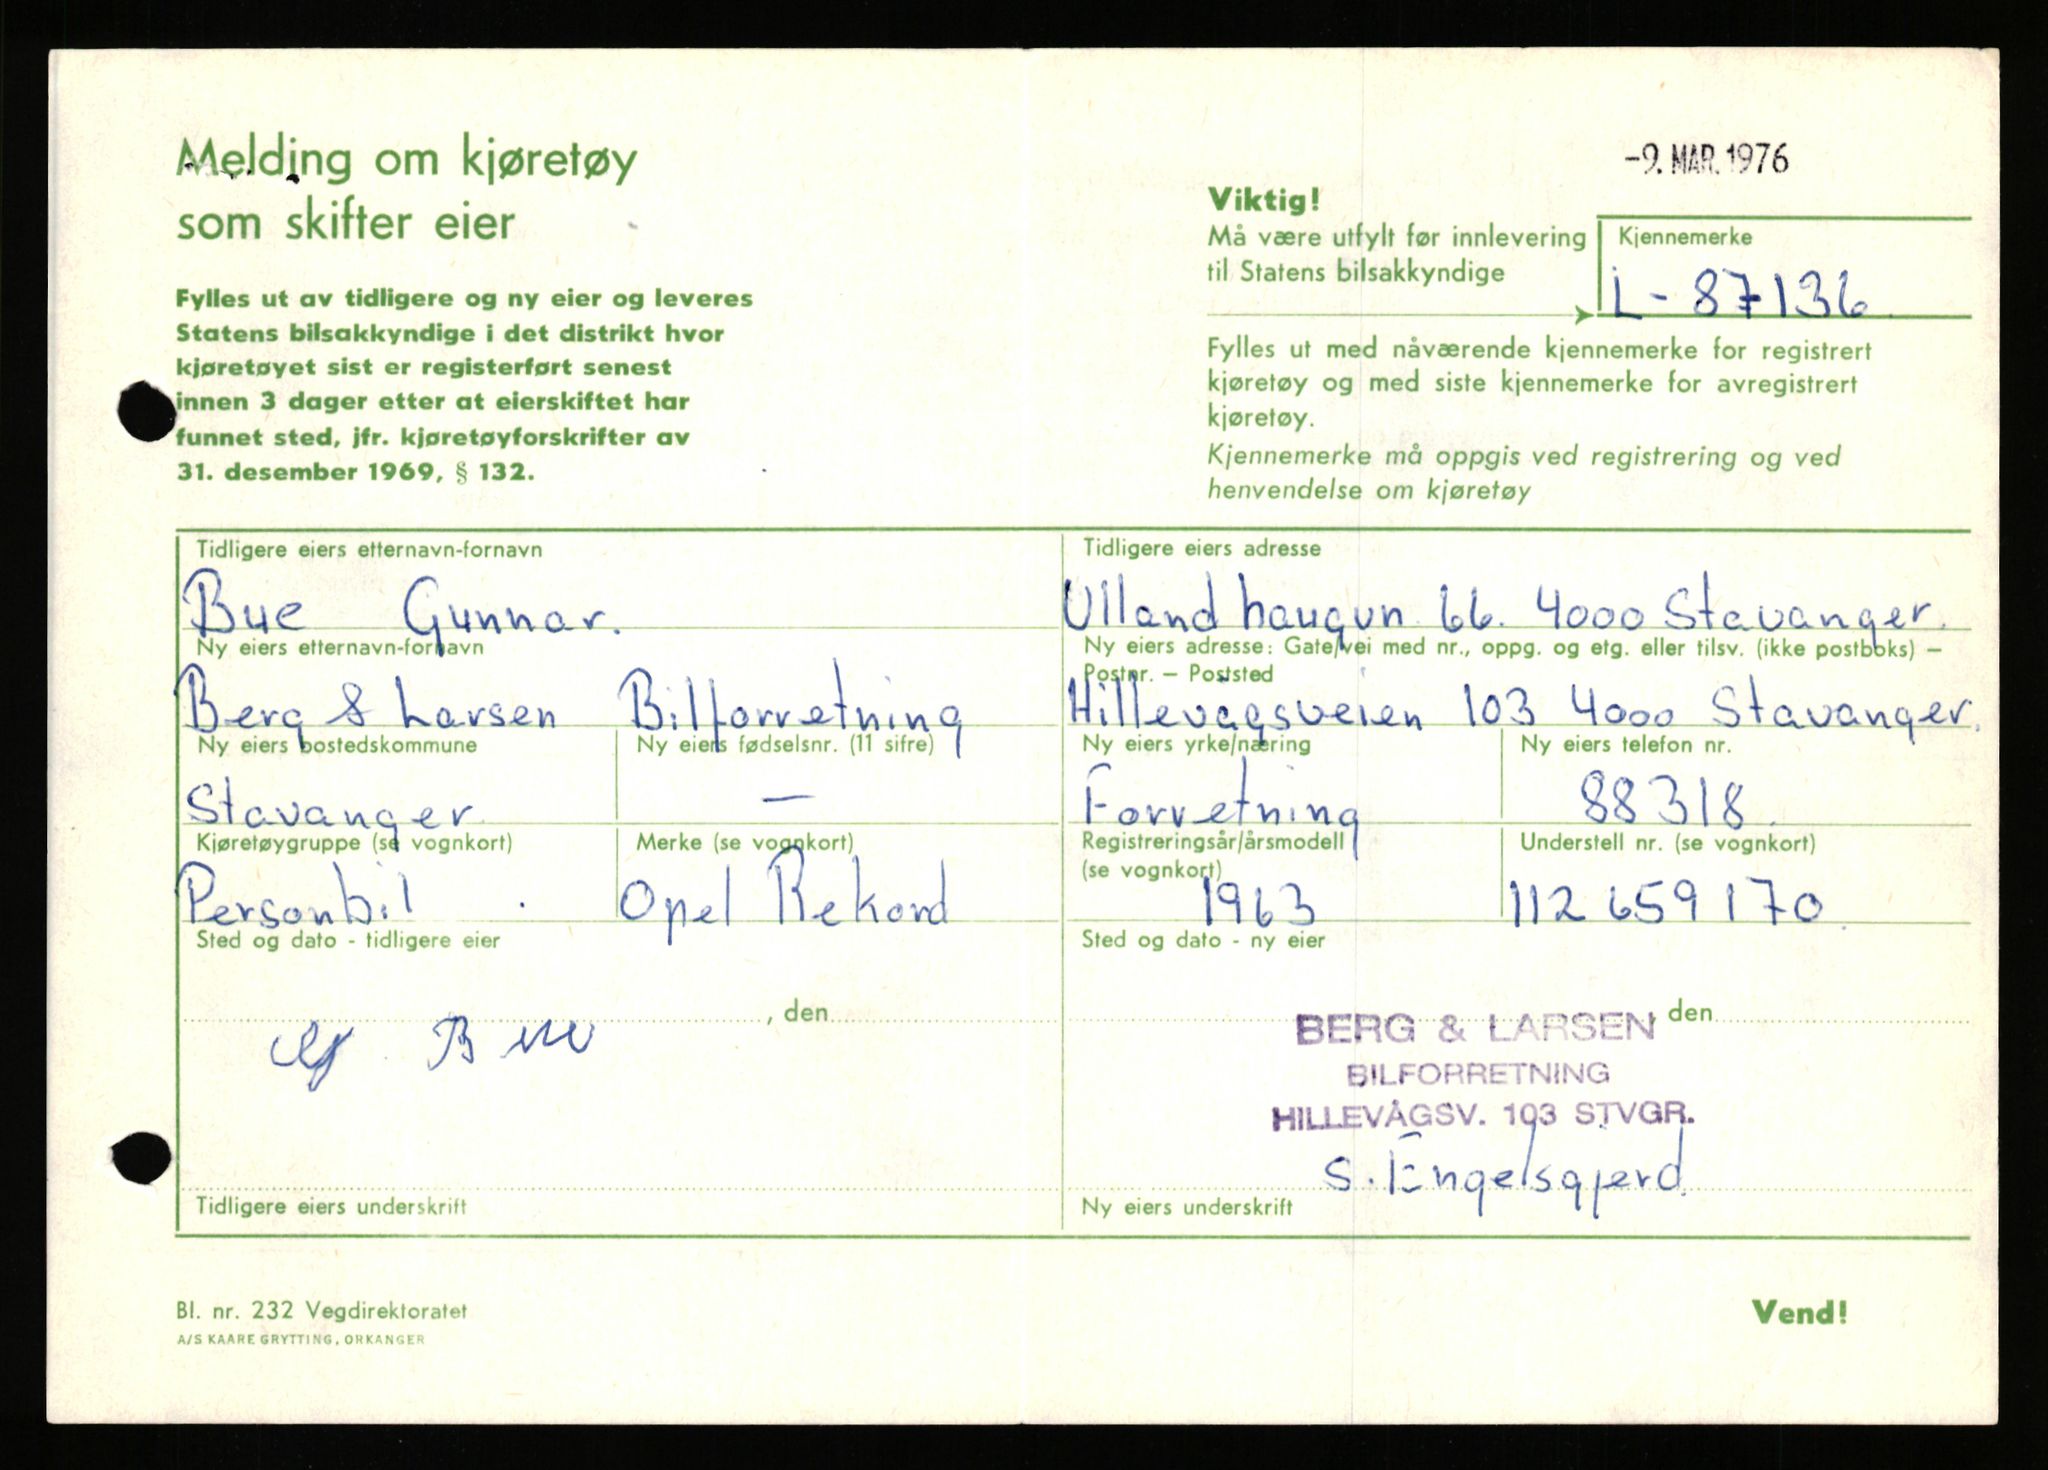 Melding om kjøretøy
som skifter eier
Fylles ut av tidligere og ny eier og leveres
Statens bilsakkyndige i det distrikt hvor
kjøretøyet sist er registerført senest
innen 3 dager etter at eierskiftet har
funnet sted, jfr. kjøretøyforskrifter av
31. desember 1969, § 132.
-9. MAR. 1976
Viktig!
Må være utfylt før innlevering
til Statens bilsakkyndige
Kjennemerke
L - 87136
Fylles ut med nåværende kjennemerke for registrert
kjøretøy og med siste kjennemerke for avregistrert
kjøretøy.
Kjennemerke må oppgis ved registrering og ved
henvendelse om kjøretøy
Tidligere eiers etternavn-fornavn
Bue Gunnar.
Tidligere eiers adresse
Ulland haugvn 66. 4000 Stavanger.
Ny eiers etternavn-fornavn
Berg & Larsen Bilforretning
Ny eiers adresse: Gate/vei med nr., oppg. og etg. eller tilsv. (ikke postboks) –
Postnr. – Poststed
Hillevågsveien 103 4000 Stavanger.
Ny eiers bostedskommune
Stavanger
Ny eiers fødselsnr. (11 sifre)
—
Ny eiers yrke/næring
Forretning
Ny eiers telefon nr.
88318.
Kjøretøygruppe (se vognkort)
Personbil .
Merke (se vognkort)
Opel Rekord
Registreringsår/årsmodell
(se vognkort)
1963
Understell nr. (se vognkort)
112 659 170.
Sted og dato - tidligere eier
Sted og dato - ny eier
, den
den
BERG & LARSEN
BILFORRETNING
HILLEVÅGSV. 103 STVGR.
S. Engelsgjerd
Tidligere eiers underskrift
Ny eiers underskrift
Bl. nr. 232 Vegdirektoratet
A/S KAARE GRYTTING, ORKANGER
Vend!